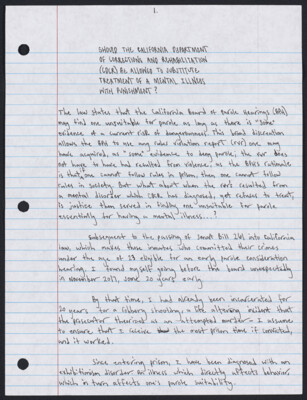 1.
SHOULD THE CALIFORNIA DEPARTMENT
OF CORRECTIONS AND REHABILITATION
(CDCR) BE ALLOWED TO SUBSTITUTE
TREATMENT OF A MENTAL ILLNESS
WITH PUNISHMENT?
The law states that the California Board of Parole Hearings (BPH)
may find one unsuitable for parole as long as there is "some"
evidence of a current risk of dangerousness. This broad discretion
allows the BPH to use any rules violation report (rvr) one may
have acquired, as "some" evidence to deny parole; the rvr does
not have to have resulted from violence, as the BPH's rationale
is that, one cannot follow rules in prison, then one cannot follow
rules in society. But what about when the rvrs resulted from
a mental disorder which CDCR has diagnosed, yet refuses to treat;
Is justice then served in finding one unsuitable for parole
essentially for having a mental illness...?
Subsequent to the passing of Senate Bill 261 into California
law, which makes those inmates who committed their crimes
under the age of 23 eligible for an early parole consideration
hearing, I found myself going before the board unexpectedly
in November 2017, some 20 years early.
By that time, I had already been incarcerated for
20 years for a robbery, shooting; a life altering incident that
the prosecutor theorized as an attempted murder - I assume
to ensure that I receive the most prison time if convicted,
and it worked.
Since entering prison, I have been diagnosed with an
exhibitionism disorder an illness which directly affects behavior,
which in turn affects one's parole suitability.